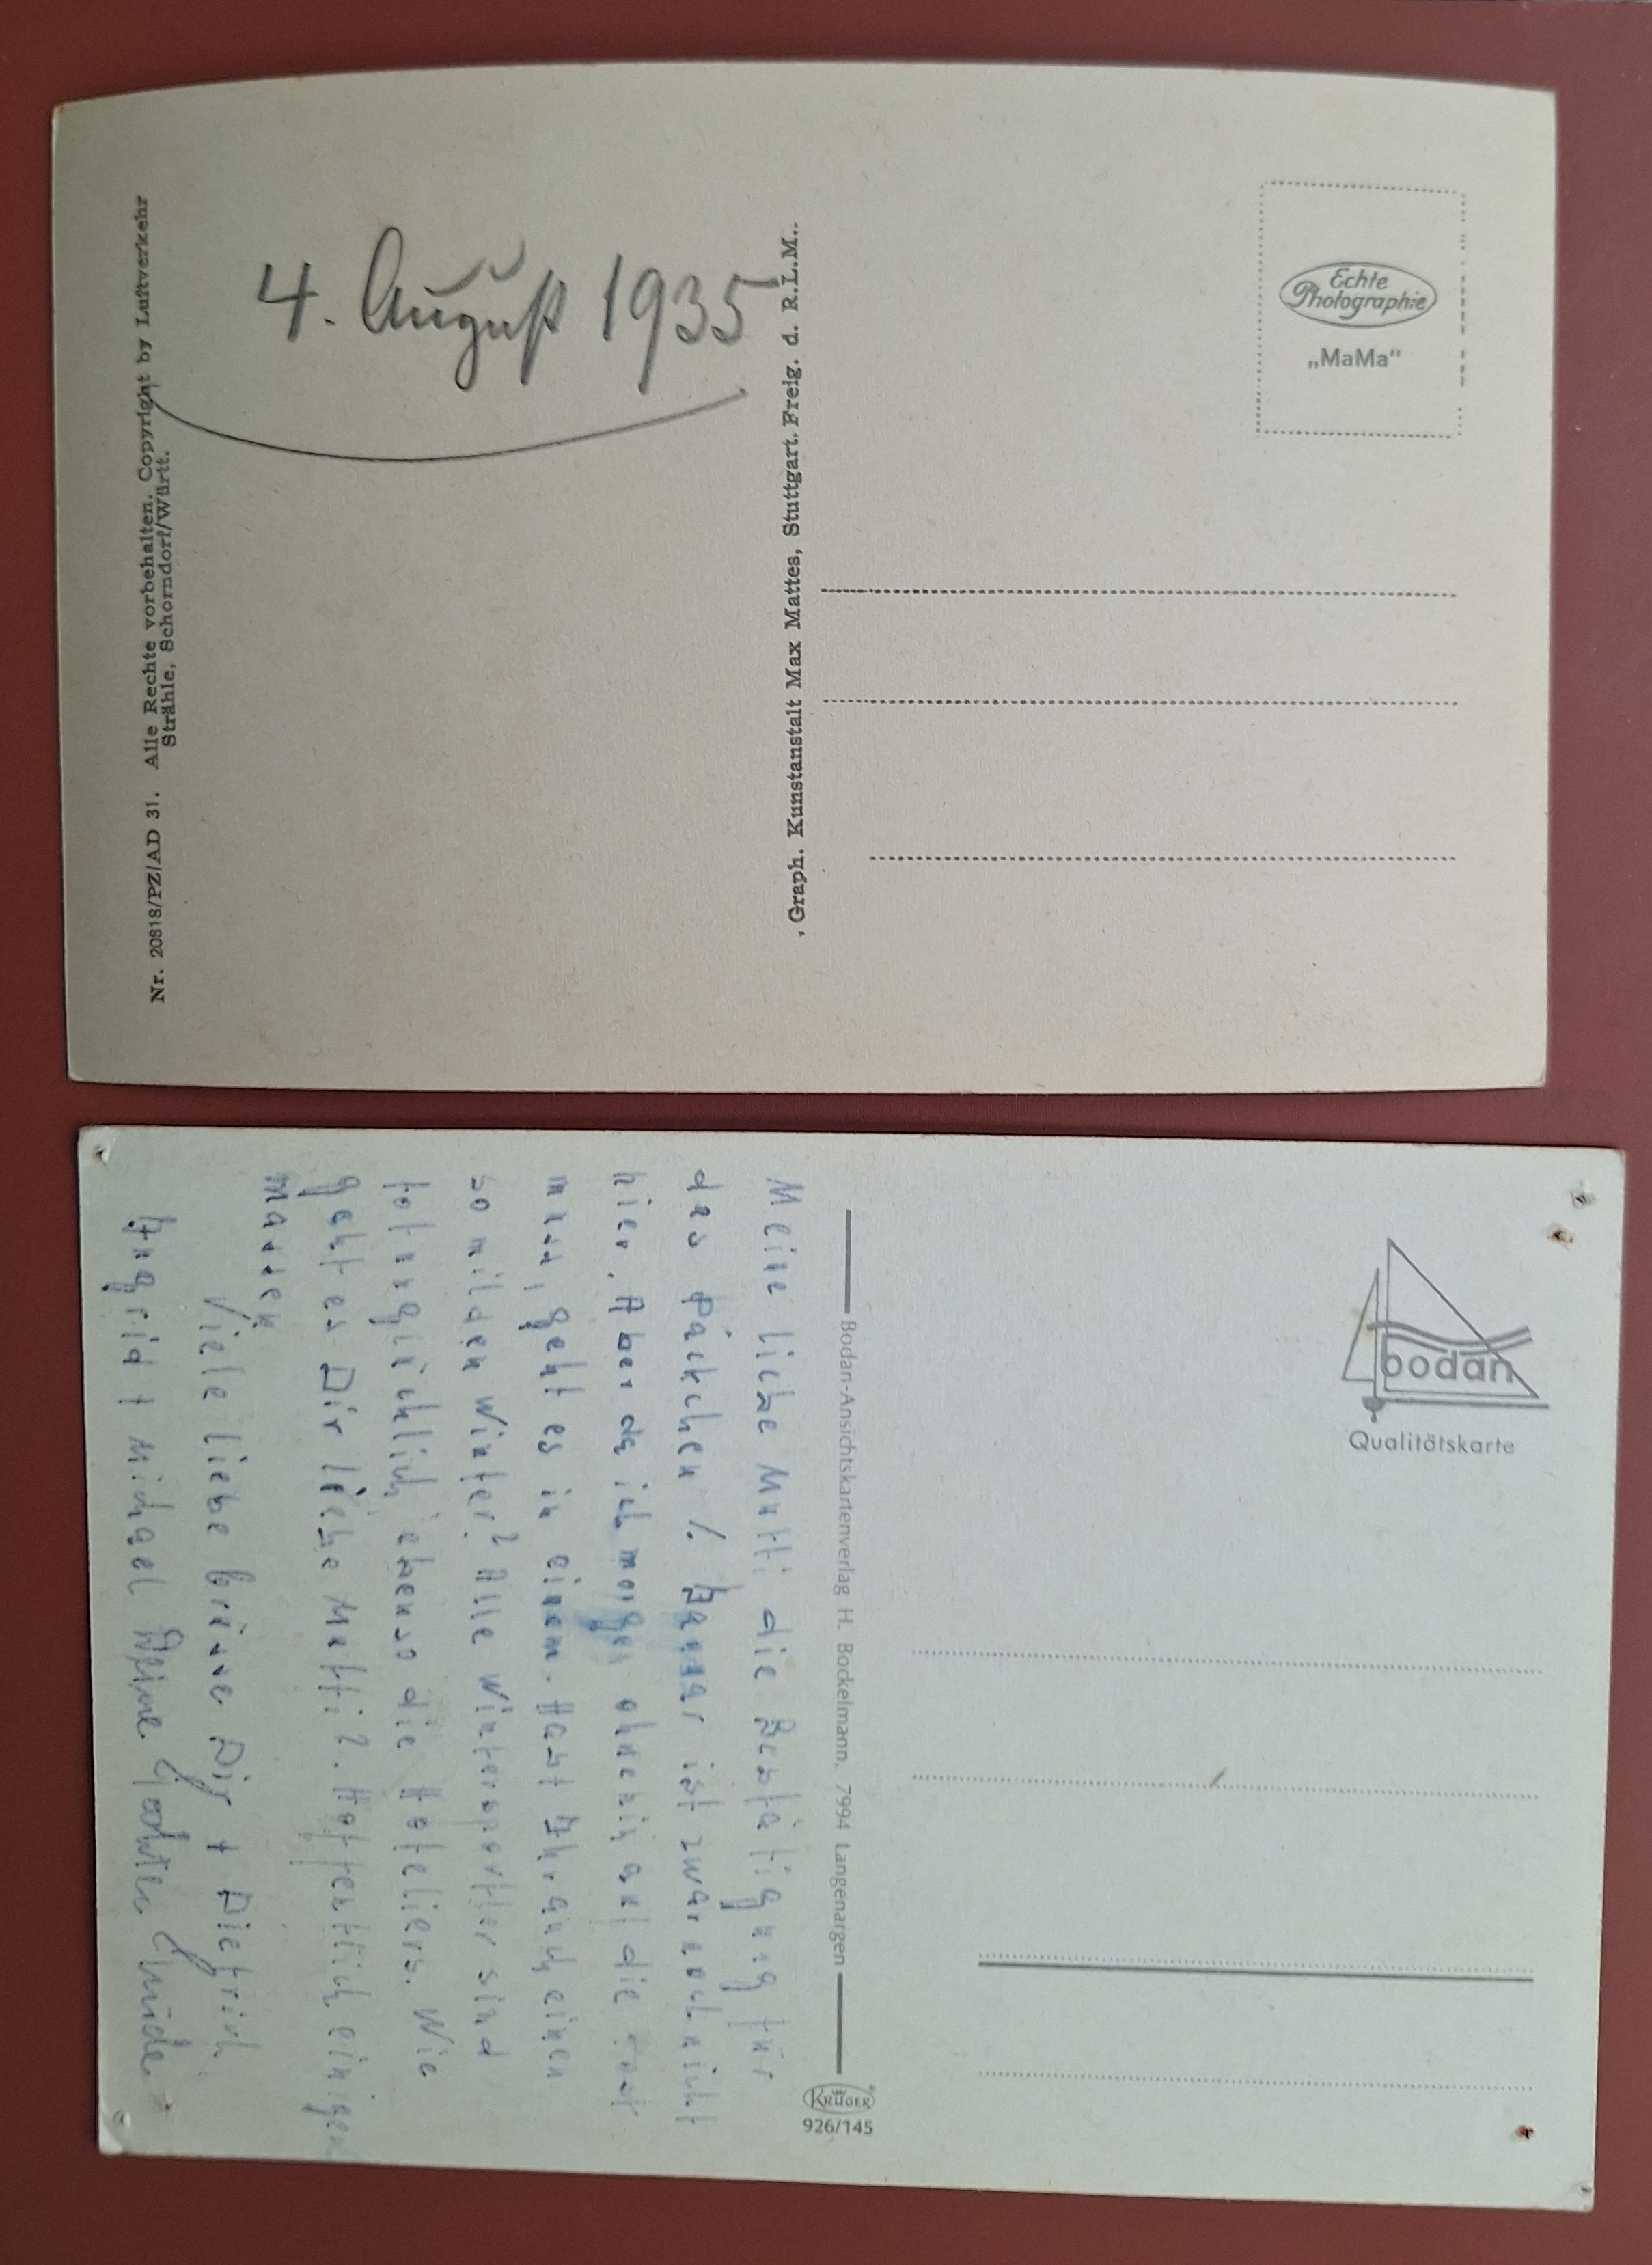 Nr. 20818/PZ/AD 31. Alle Rechte vorbehalten. Copyright by Luftverkehr
Strähle, Schorndorf/Württ.
4. August 1935
, Graph. Kunstanstalt Max Mattes, Stuttgart. Freig. d. R.L.M..
Echte
Photographie
„MaMa"
Meine liebe Mutti die Bestätigung für
das Päckchen /. Banner ist zwar noch nicht
hier. Aber da ich morgen ohnehin auf die Post
muss, geht es in einem. Habt Ihr auch einen
so milden Winter? Alle Wintersportler sind
tot unglücklich, ebenso die Hoteliers. Wie
geht es Dir liebe Mutti?. Hoffentlich einiger
massen
Viele liebe Grüsse Dir + Dietrich
Ingrid + michael Deine
Bodan-Ansichtskartenverlag H. Bockelmann, 7994 Langenargen
KRÜGER
926/145
bodan
Qualitätskarte